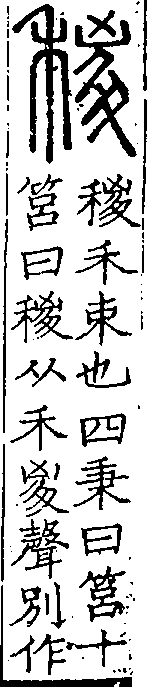 稯
稯禾束也四秉曰筥十
筥曰稯从禾㚇聲別作